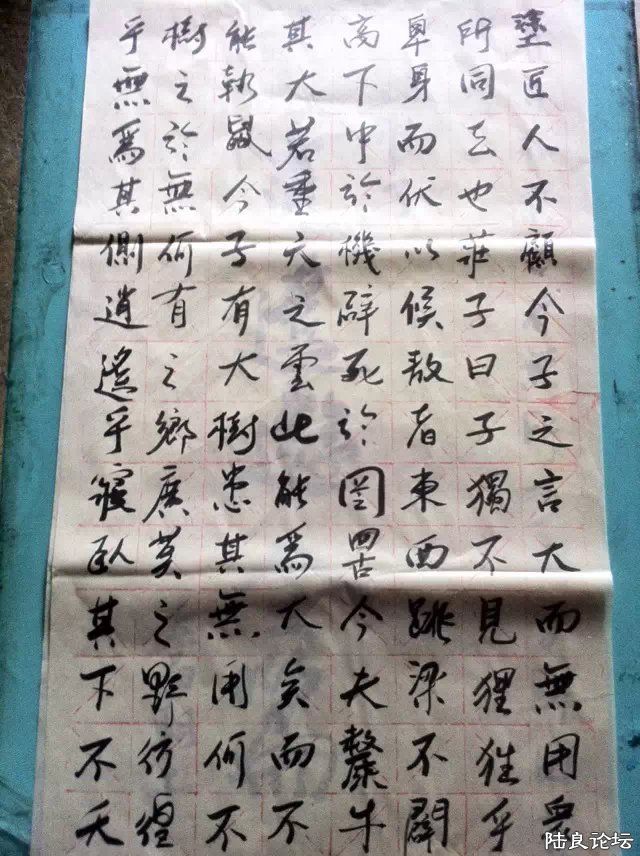 塗匠人不顧今子之言大而無用眾
所同去也莊子曰子獨不見狸狌乎
卑身而伏以候敖者東西跳梁不闢
高下中於機辟死於罔罟今夫犛牛
其大若垂天之雲此能爲大矣而不
能執鼠今子有大樹患其無用何不
樹之於無何有之鄉廣莫之野彷徨
乎無爲其側逍遙乎寢臥其下不夭
陆良论坛